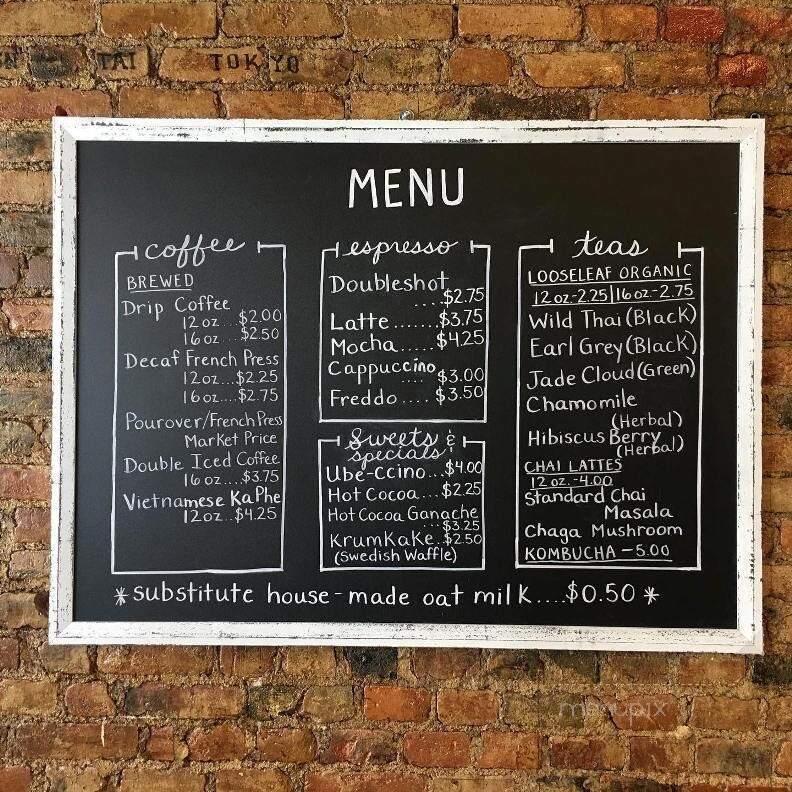 TAI TOKYO
MENU
coffee
BREWED
Drip Coffee
12 oz...$2.00
16 oz...$2.50
Decaf French Press
12 oz...$2.25
16 oz...$2.75
Pourover/French Press
Market Price
Double Iced Coffee
16 oz....$3.75
Vietnamese KaPhe
12 oz..$4.25
espresso
Doubleshot
....$2.75
Latte.......$3.75
Mocha.....$4.25
Cappuccino
....$3.00
Freddo....$3.50
Sweets &
specials
Ube-ccino...$4.00
Hot Cocoa...$2.25
Hot Cocoa Ganache
...$3.25
KrumKaKe..$2.50
(Swedish Waffle)
teas
LOOSELEAF ORGANIC
12 oz-2.25|16 oz-2.75
Wild Thai (Black)
Earl Grey (Black)
Jade Cloud (Green)
Chamomile
(Herbal)
Hibiscus Berry
(Herbal)
CHAI LATTES
12 oz.-4.00
Standard Chai
Masala
Chaga Mushroom
KOMBUCHA-5.00
*substitute house-made oat milk....$0.50*
menupix